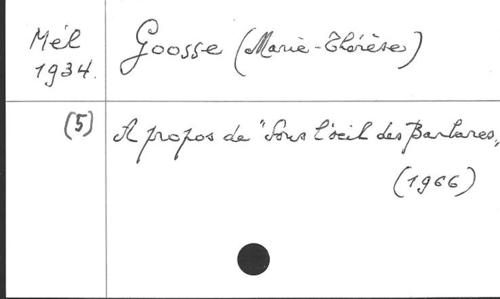 Mél
1934.
Goosse (Marie-Thérèse)
(5)
A propos de "Sous l'oeil des Barbares"
(1966)